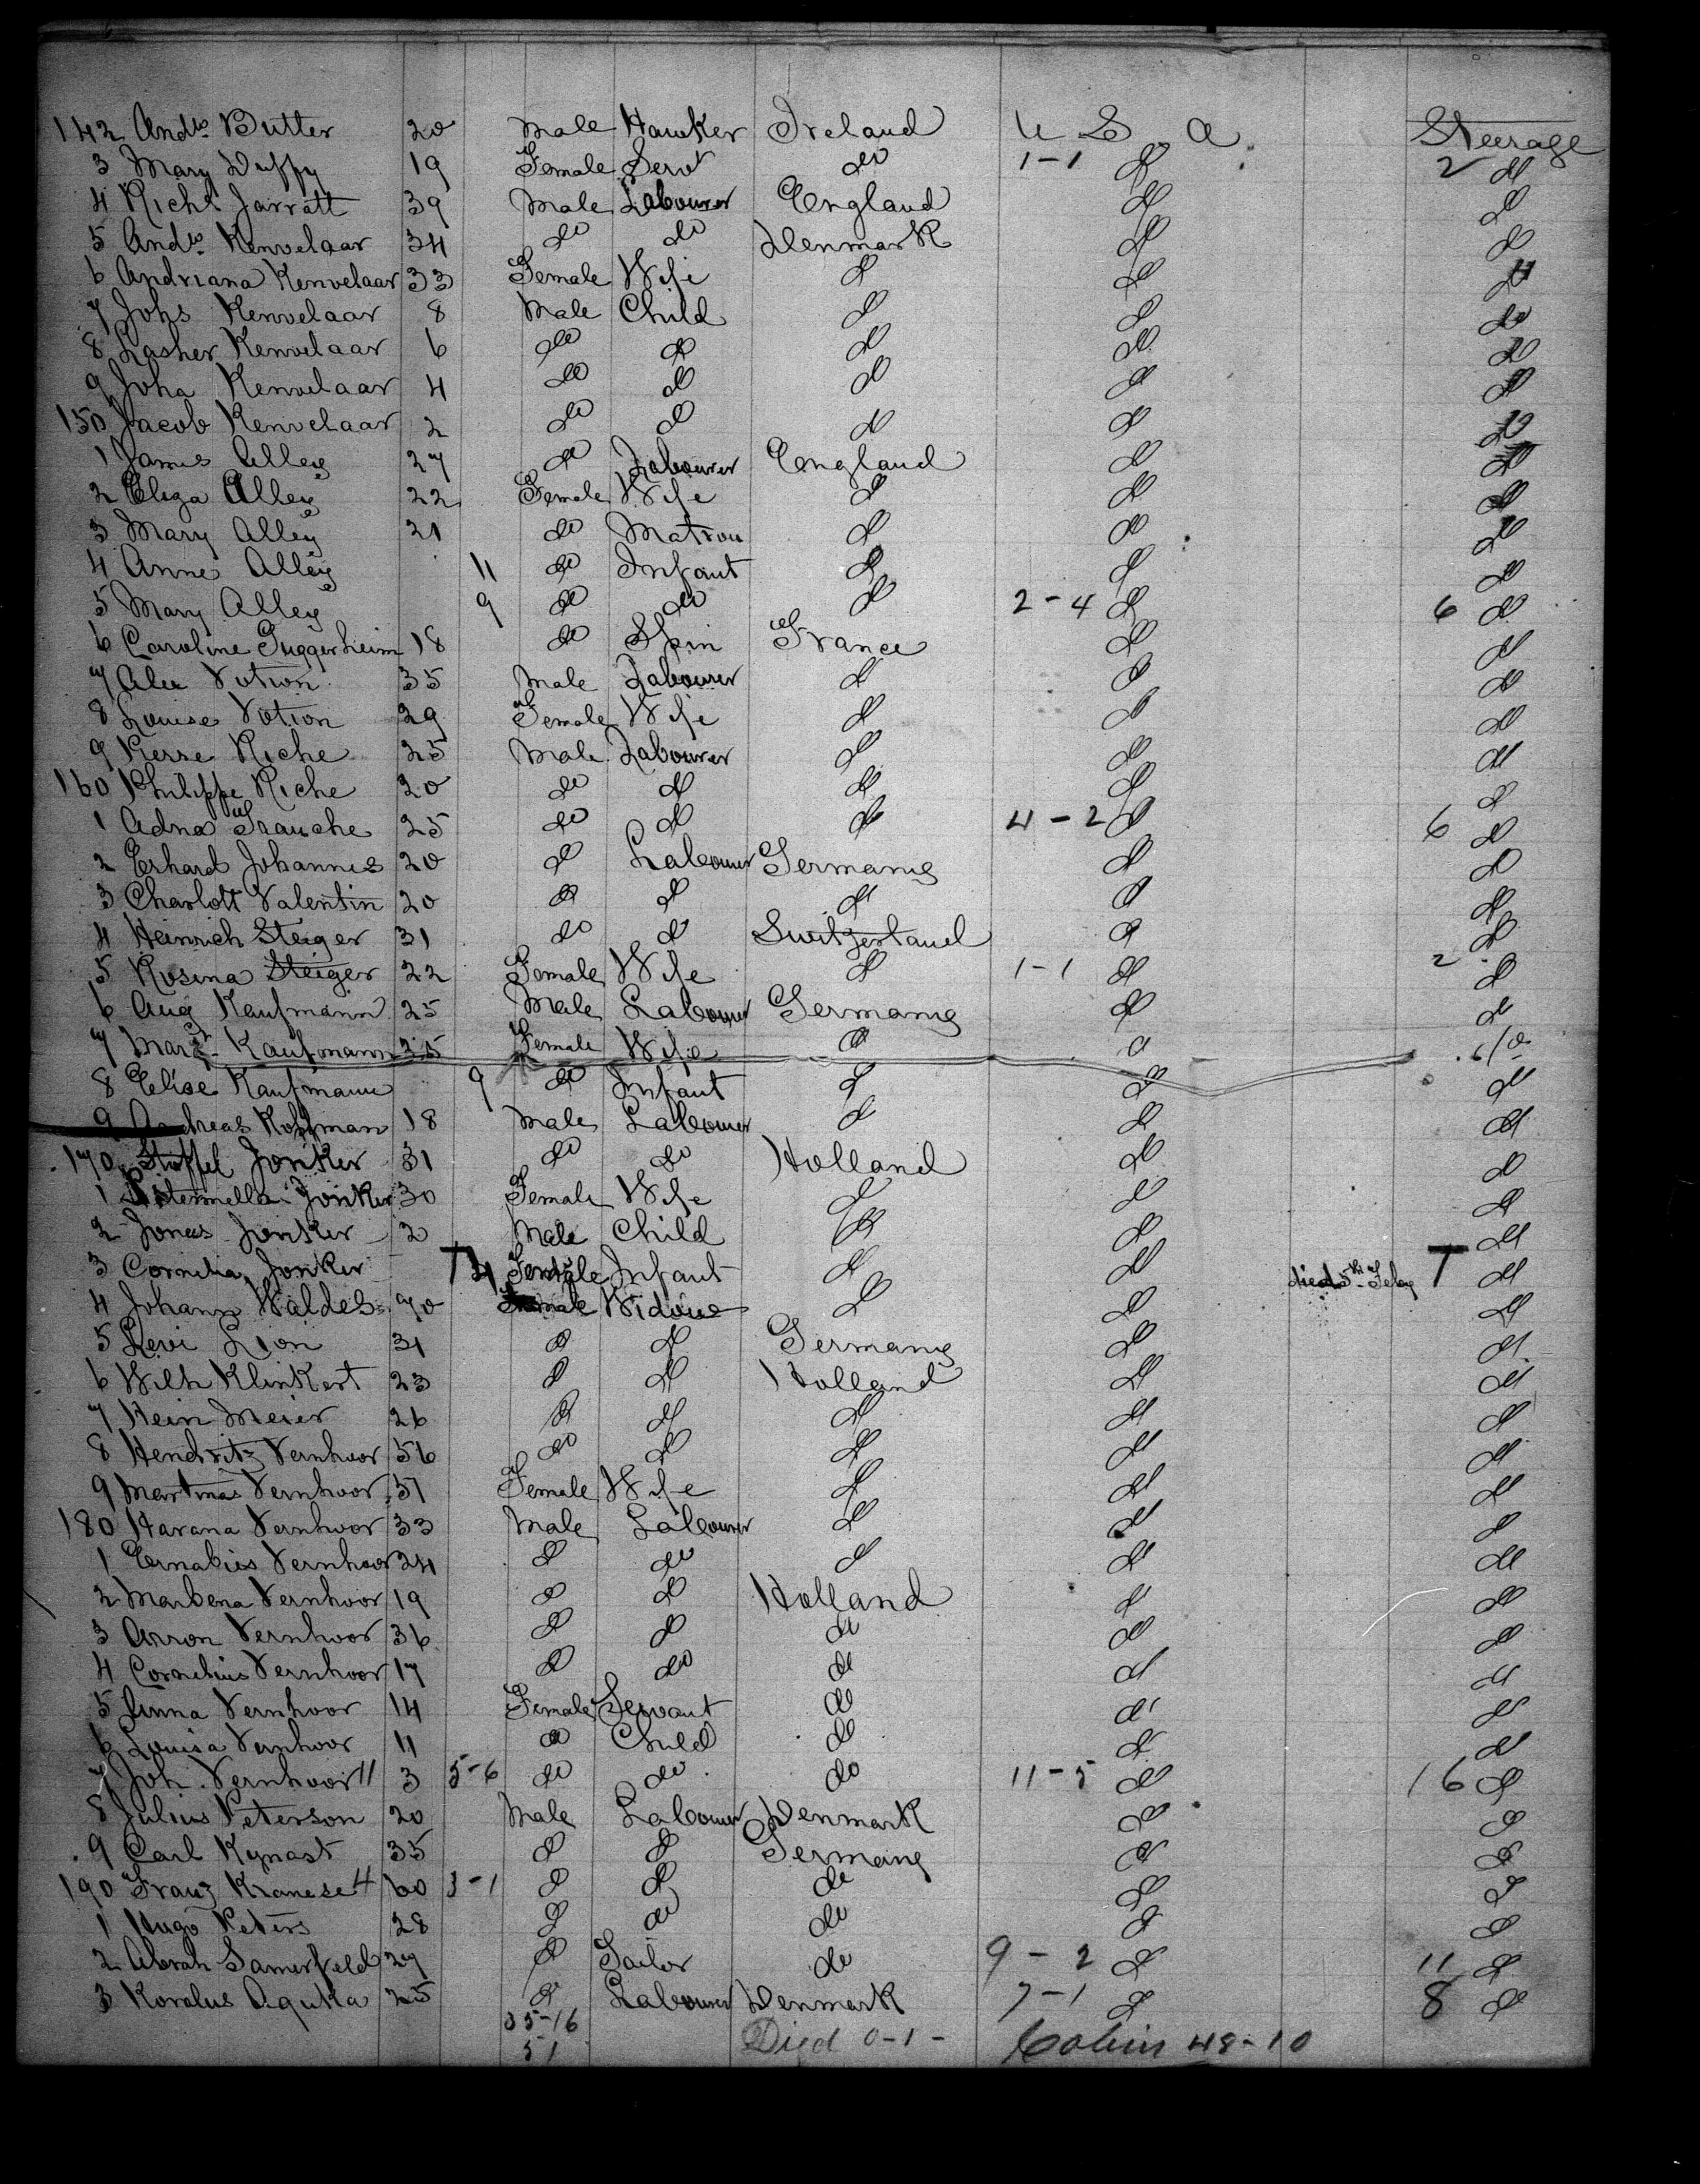 142 Andw Butter 20 Male Hawker Ireland U S A Steerage
3 Mary Duffy 19 Female Servt do 1-1 do 2 do
4 Richd Jarratt 39 Male Labourer England do do
5 Andw Kenvelaar 34 do do Denmark do do
6 Andriana Kenvelaar 33 Female Wife do do do
7 Johs Kenvelaar 8 Male Child do do do
8 Lasher Kenvelaar 6 do do do do do
9 Joha Kenvelaar 4 do do do do do
150 Jacob Kenvelaar 2 do do do do do
1 James Alley 27 do Labourer England do do
2 Eliza Alley 22 Female Wife do do do
3 Mary Alley 21 do Matron do do do
4 Anne Alley 11 do Infant do do do
5 Mary Alley 9 do do do 2-4 do 6 do
6 Caroline Guggerheim 18 do Spin France do do
7 Alex Votion 35 Male Labourer do do do
8 Louise Votion 29 Female Wife do do do
9 Pierre Riche 25 Male Labourer do do do
160 Philippe Riche 20 do do do do do
1 Adna Frauche 25 do do do 4-2 do 6 do
2 Erhard Johannes 20 do Labourer Germany do do
3 Charlott Valentin 20 do do do do do
4 Heinrich Steiger 31 do do Switzerland do do
5 Rosina Steiger 22 Female Wife do 1-1 do 2 do
6 Aug Kaufmann 25 Male Labourer Germany do do
7 Margt Kaufmann 25 Female Wife do do do
8 Elise Kaufmann 9 do Infant do do do
9 Andreas Koffman 18 Male Labourer do do do
170 Stoffel Jonker 31 do do Holland do do
1 Peternella Jonker 30 Female Wife do do do
2 Jonas Jonker 2 Male Child do do do
3 Cornelia Jonker T 4 Female Infant do do died 5th Feby T do
4 Johann Waldes 70 male Widow do do do
5 Levi Lion 31 do do Germany do do
6 Wilh Klinkert 23 do do Holland do do
7 Hein Meier 26 do do do do do
8 Hendritz Vernhoor 56 do do do do do
9 Martinas Vernhoor 51 Female Wife do do do
180 Havana Vernhoor 33 Male Labourer do do do
1 Ernabius Vernhoor 24 do do do do do
2 Marbena Vernhoor 19 do do Holland do do
3 Arron Vernhoor 36 do do do do do
4 Cornelius Vernhoor 17 do do do do do
5 Anna Vernhoor 14 Female Servant do do do
6 Louisa Vernhoor 11 do Child do do do
7 Joh. Vernhoor 11 3 5-6 do do do 11-5 do 16 do
8 Julius Peterson 20 Male Labourer Denmark do do
9 Carl Kynast 35 do do Germany do do
190 Franz Kranese 4 60 3-1 do do do do do
1 Hugo Peters 28 do do do do do
2 Abrah Samerfeld 27 do Tailor do 9-2 do 11 do
3 Koralus Aquka 25 do Labourer Denmark 7-1 do 8 do
35-16
51 Died 0-1- Cabin 48-10